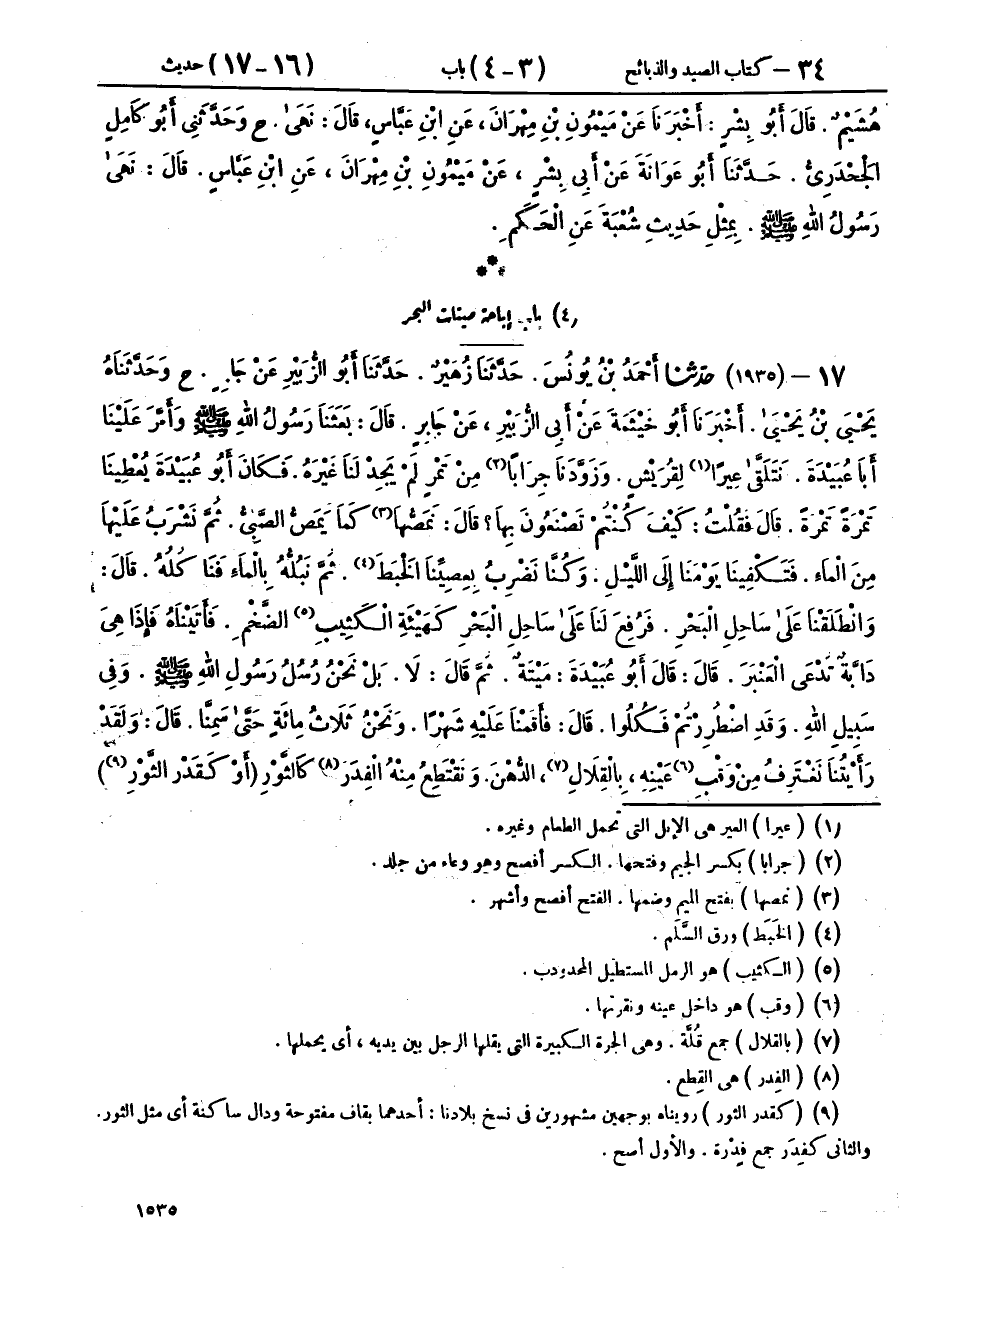 ٣٤ – كتاب الصيد والذبائح (٣ – ٤) باب (١٦ – ١٧) حديث
هُشَيْمٌ. قَالَ أَبُو بِشْرٍ : أَخْبَرَنَا عَنْ مَيْمُونِ بْنِ مِهْرَانَ، عَنِ ابْنِ عَبَّاسٍ، قَالَ : نَهَىٰ. ح وَحَدَّثَنِي أَبُو كَامِلٍ
الْجَحْدَرِىُّ . حَدَّثَنَا أَبُو عَوَانَةَ عَنْ أَبِى بِشْرٍ ، عَنْ مَيْمُونِ بْنِ مِهْرَانَ ، عَنِ ابْنِ عَبَّاسٍ. قَالَ : نَهَىٰ
رَسُولُ اللهِ ﷺ . بِمِثْلِ حَدِيثِ شُعْبَةَ عَنِ الْحَكَمِ.
***
(٤) باب إباحة ميتات البحر
١٧ – (١٩٣٥) حَدَّثَنَا أَحْمَدُ بْنُ يُونُسَ. حَدَّثَنَا زُهَيْرٌ. حَدَّثَنَا أَبُو الزُّبَيْرِ عَنْ جَابِرٍ . ح وَحَدَّثَنَاهُ
يَحْيَىٰ بْنُ يَحْيَىٰ . أَخْبَرَنَا أَبُو خَيْثَمَةَ عَنْ أَبِى الزُّبَيْرِ ، عَنْ جَابِرٍ . قَالَ : بَعَثَنَا رَسُولُ اللهِ ﷺ وَأَمَّرَ عَلَيْنَا
أَبَا عُبَيْدَةَ . نَتَلَقَّىٰ عِيرًا(١) لِقُرَيْشٍ . وَزَوَّدَنَا جِرَابًا(٢) مِنْ تَمْرٍ لَمْ يَجِدْ لَنَا غَيْرَهُ. فَكَانَ أَبُو عُبَيْدَةَ يُعْطِينَا
تَمْرَةً تَمْرَةً . قَالَ فَقُلْتُ : كَيْفَ كُنْتُمْ تَصْنَعُونَ بِهَا؟ قَالَ : نَمَصُّهَا(٣) كَمَا يَمَصُّ الصَّبِىُّ . ثُمَّ نَشْرَبُ عَلَيْهَا
مِنَ الْمَاءِ . فَتَكْفِينَا يَوْمَنَا إِلَى اللَّيْلِ . وَكُنَّا نَضْرِبُ بِعِصِيِّنَا الْخَبَطَ(٤) . ثُمَّ نَبُلُّهُ بِالْمَاءِ فَنَأْكُلُهُ . قَالَ :
وَانْطَلَقْنَا عَلَىٰ سَاحِلِ الْبَحْرِ . فَرُفِعَ لَنَا عَلَىٰ سَاحِلِ الْبَحْرِ كَهَيْئَةِ الْكَثِيبِ(٥) الضَّخْمِ . فَأَتَيْنَاهُ فَإِذَا هِىَ
دَابَّةٌ تُدْعَى الْعَنْبَرَ . قَالَ : قَالَ أَبُو عُبَيْدَةَ : مَيْتَةٌ . ثُمَّ قَالَ : لَا . بَلْ نَحْنُ رُسُلُ رَسُولِ اللهِ ﷺ . وَفِى
سَبِيلِ اللهِ . وَقَدِ اضْطُرِرْتُمْ فَكُلُوا . قَالَ : فَأَقَمْنَا عَلَيْهِ شَهْرًا . وَنَحْنُ ثَلَاثُ مِائَةٍ حَتَّىٰ سَمِنَّا . قَالَ : وَلَقَدْ
رَأَيْتُنَا نَغْتَرِفُ مِنْ وَقْبِ(٦) عَيْنِهِ ، بِالْقِلَالِ(٧)، الدُّهْنَ. وَنَقْتَطِعُ مِنْهُ الْفِدَرَ(٨) كَالثَّوْرِ (أَوْ كَقَدْرِ الثَّوْرِ(٩))
(١) ( عيرا ) العير هى الإبل التى تحمل الطعام وغيره .
(٢) ( جرابا ) بكسر الجيم وفتحها . الكسر أفصح وهو وعاء من جلد .
(٣) ( نمصها ) بفتح الميم وضمها . الفتح أفصح وأشهر .
(٤) ( الخَبَط ) ورق السَّلَم .
(٥) ( الكثيب ) هو الرمل المستطيل المحدودب .
(٦) ( وقب ) هو داخل عينه ونقرتها .
(٧) ( بالقلال ) جمع قُلَّة . وهى الجرة الكبيرة التى يقلها الرجل بين يديه ، أى يحملها .
(٨) ( الفِدر ) هى القِطع .
(٩) ( كقدر الثور ) رويناه بوجهين مشهورين فى نسخ بلادنا : أحدهما بقاف مفتوحة ودال ساكنة أى مثل الثور.
والثانى كفِدَر جمع فِدْرة . والأول أصح .
١٥٣٥